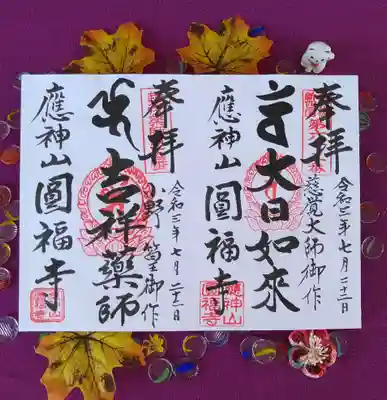 奉拝
慈覚大師御作
令和三年七月二十二日
大日如來
應神山圓福寺
奉拝
小野篁御作
令和三年七月二十二日
吉祥薬師
應神山圓福寺